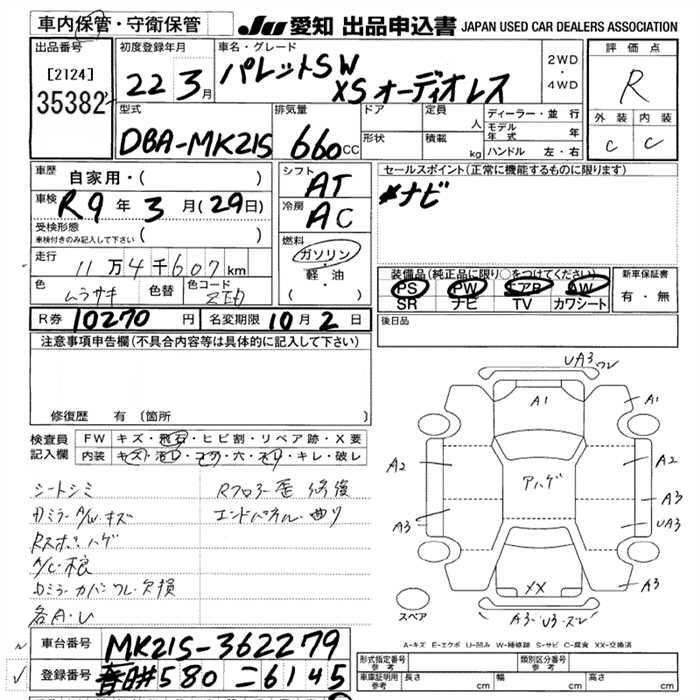 車内保管・守衛保管
JU 愛知 出品申込書 JAPAN USED CAR DEALERS ASSOCIATION
出品番号
[2124]
35382
初度登録年月
22 3月
車名・グレード
パレットSW
XS オーディオレス
2WD
・
4WD
評価点
R
外装 内装
C C
型式
DBA-MK21S
排気量
660cc
ドア
形状
定員 人
積載 kg
ディーラー・並行
モデル年式 年
ハンドル 左・右
車歴 自家用・( )
車検 R9年3月(29日)
受検形態
車検付きのみ記入して下さい ( )
走行 11万4千607km
色 ムラサキ 色替 色コード
シフト AT
冷房 AC
燃料
ガソリン
軽・油
( )
セールスポイント(正常に機能するものに限ります)
ナビ
装備品(純正品に限り○をつけてください)
PS PW エアB AW
SR ナビ TV カワシート
新車保証書
有・無
後日品
R券 10270円 名変期限 10月2日
注意事項申告欄(不具合内容等は具体的に記入して下さい)
修復歴 有 〔箇所
検査員記入欄
FW キズ・飛石・ヒビ割・リペア跡・X要
内装 キズ・汚レ・コゲ・穴・スレ・キレ・破レ
シートシミ
Rフロアー歪 修復
エンドパネル・曲り
A/C・根
各A・U
UA3 ワレ
A1
A1
A2
A2
アハゲ
A3
A3
UA3
XX
A3
A3・U3・ズレ
スペア
A-キズ E-エクボ U-凹み W-補修跡 S-サビ C-腐食 XX-交換済
車台番号 MK21S-362279
登録番号 春日井580 ニ6145
形式指定番号
参考
類別区分番号
参考
車庫証明用
参考
長さ cm 幅 cm 高さ cm